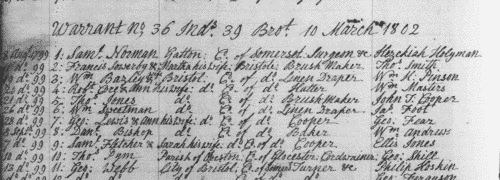 Warrant No. 36 Inds. 39 Brot. 10 March 1802
1: Saml. Norman Yatton Co. of Somerset Surgeon & Hezekiah Holyman
2: Francis & Martha his wife Bristol Brush Maker Thos. Smith
99 3: Wm. Bazley Bristol Co. of do. Linen Draper Wm. K. Pinson
99 4: Robt. & Ann his wife do. Co. of do. Hatter Wm. Masters
99 5: Thos. Jones do. Co. of do. Brush Maker John T. Cooper
99 6: Wm. do. Co. of do. Linen Draper Jas. Foot
do. 99 7: Geo. Lewis & Ann his wife do. Co. of do. Cooper Geo. Fear
Sept. 99 8: Danl. Bishop do. Co. of do. Baker Wm. Andrews
7 do. 99 9: Saml. Fletcher & Sarah his wife do. Co. of do. Cooper Ellis Jones
10 do. 99 10: Thos. Pym Parish of Co. of Glocester Cordwainer Geo.
13 do. 99 11: Geo. Webb City of Bristol, Co. of Turner & Philip Hoskin
Geo. Ferguson